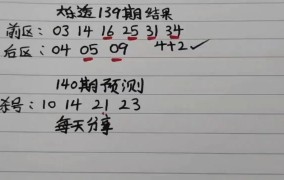 大乐透139期结果
前区: 03 14 16 25 31 34
后区: 04 05 09 4+2✓
140期预测
杀号: 10 14 21 23
每天分享